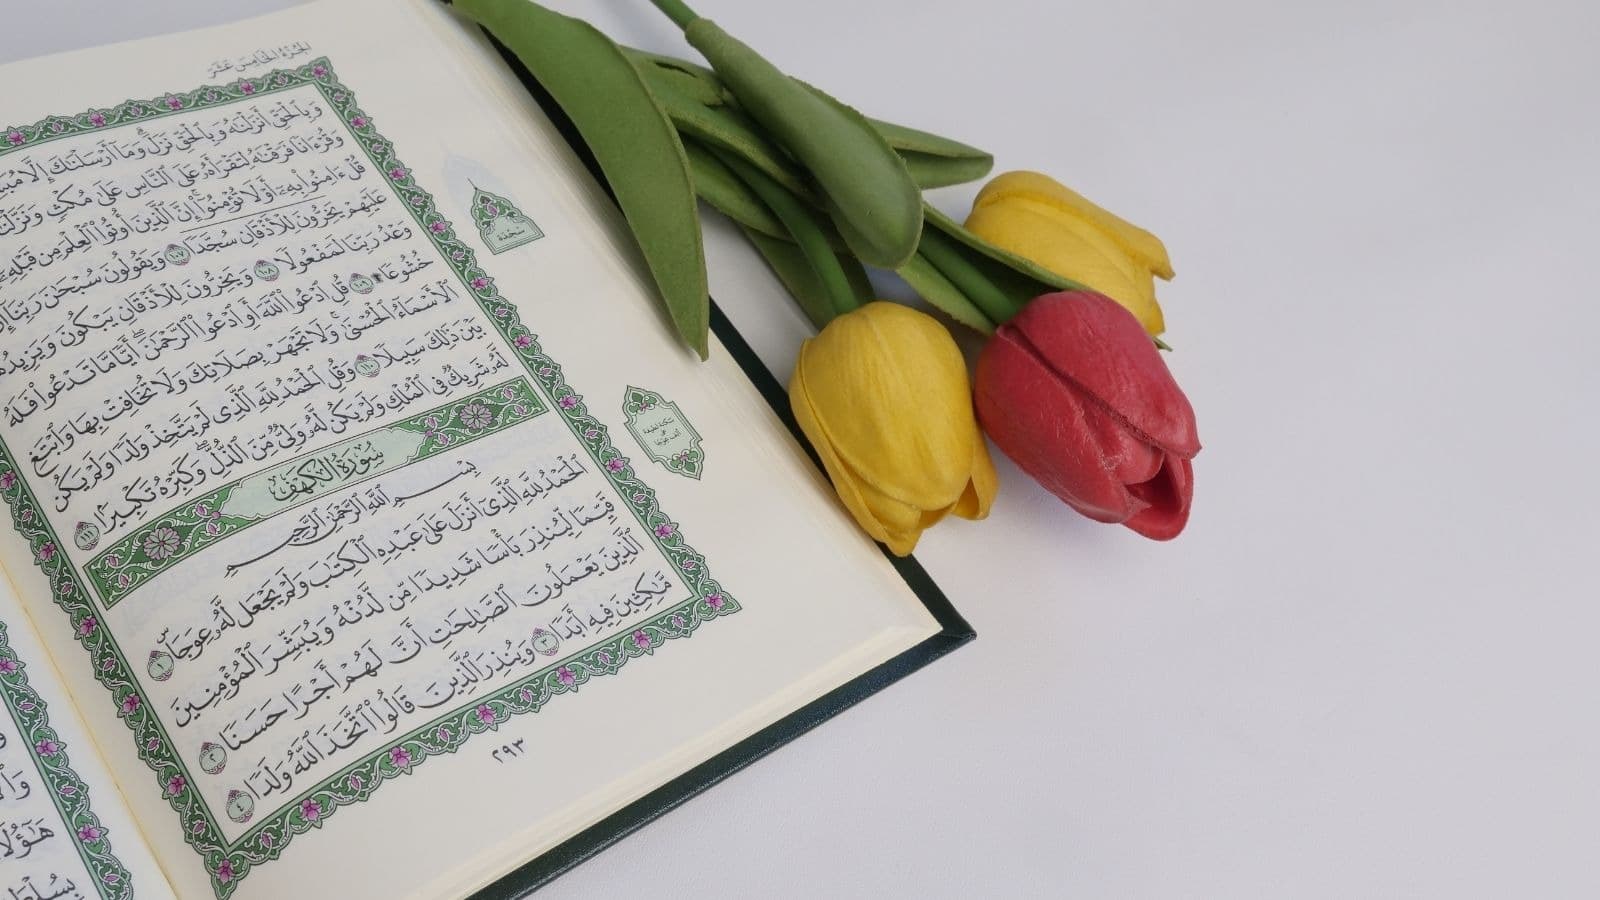 الجزء الخامس عشر
وَبِٱلْحَقِّ أَنزَلْنَٰهُ وَبِٱلْحَقِّ نَزَلَ ۗ وَمَآ أَرْسَلْنَٰكَ إِلَّا
وَقُرْءَانًا فَرَقْنَٰهُ لِتَقْرَأَهُۥ عَلَى ٱلنَّاسِ عَلَىٰ مُكْثٍ
قُلْ ءَامِنُوا۟ بِهِۦٓ أَوْ لَا تُؤْمِنُوٓا۟ ۚ إِنَّ ٱلَّذِينَ أُوتُوا۟ ٱلْعِلْمَ مِن قَبْلِهِۦٓ
عَلَيْهِمْ يَخِرُّونَ لِلْأَذْقَانِ سُجَّدًا ١٠٧ وَيَقُولُونَ سُبْحَٰنَ رَبِّنَآ
وَعْدُ رَبِّنَا لَمَفْعُولًا ١٠٨ وَيَخِرُّونَ لِلْأَذْقَانِ يَبْكُونَ وَيَزِيدُهُمْ
خُشُوعًا ۩ ١٠٩ قُلِ ٱدْعُوا۟ ٱللَّهَ أَوِ ٱدْعُوا۟ ٱلرَّحْمَٰنَ ۖ أَيًّا مَّا تَدْعُوا۟ فَلَهُ
ٱلْأَسْمَآءُ ٱلْحُسْنَىٰ ۚ وَلَا تَجْهَرْ بِصَلَاتِكَ وَلَا تُخَافِتْ بِهَا وَٱبْتَغِ
بَيْنَ ذَٰلِكَ سَبِيلًا ١١٠ وَقُلِ ٱلْحَمْدُ لِلَّهِ ٱلَّذِى لَمْ يَتَّخِذْ وَلَدًا وَلَمْ يَكُن
لَّهُۥ شَرِيكٌ فِى ٱلْمُلْكِ وَلَمْ يَكُن لَّهُۥ وَلِىٌّ مِّنَ ٱلذُّلِّ ۖ وَكَبِّرْهُ تَكْبِيرًۢا ١١١
سُورَةُ الكَهْفِ
بِسْمِ ٱللَّهِ ٱلرَّحْمَٰنِ ٱلرَّحِيمِ
ٱلْحَمْدُ لِلَّهِ ٱلَّذِىٓ أَنزَلَ عَلَىٰ عَبْدِهِ ٱلْكِتَٰبَ وَلَمْ يَجْعَل لَّهُۥ عِوَجَاۜ ١
قَيِّمًا لِّيُنذِرَ بَأْسًا شَدِيدًا مِّن لَّدُنْهُ وَيُبَشِّرَ ٱلْمُؤْمِنِينَ
ٱلَّذِينَ يَعْمَلُونَ ٱلصَّٰلِحَٰتِ أَنَّ لَهُمْ أَجْرًا حَسَنًا ٢
مَّٰكِثِينَ فِيهِ أَبَدًا ٣ وَيُنذِرَ ٱلَّذِينَ قَالُوا۟ ٱتَّخَذَ ٱللَّهُ وَلَدًا ٤
٢٩٣
سَجْدَة
سكتة لطيفة
على
ألف عوجا
هَٰٓؤُلَا